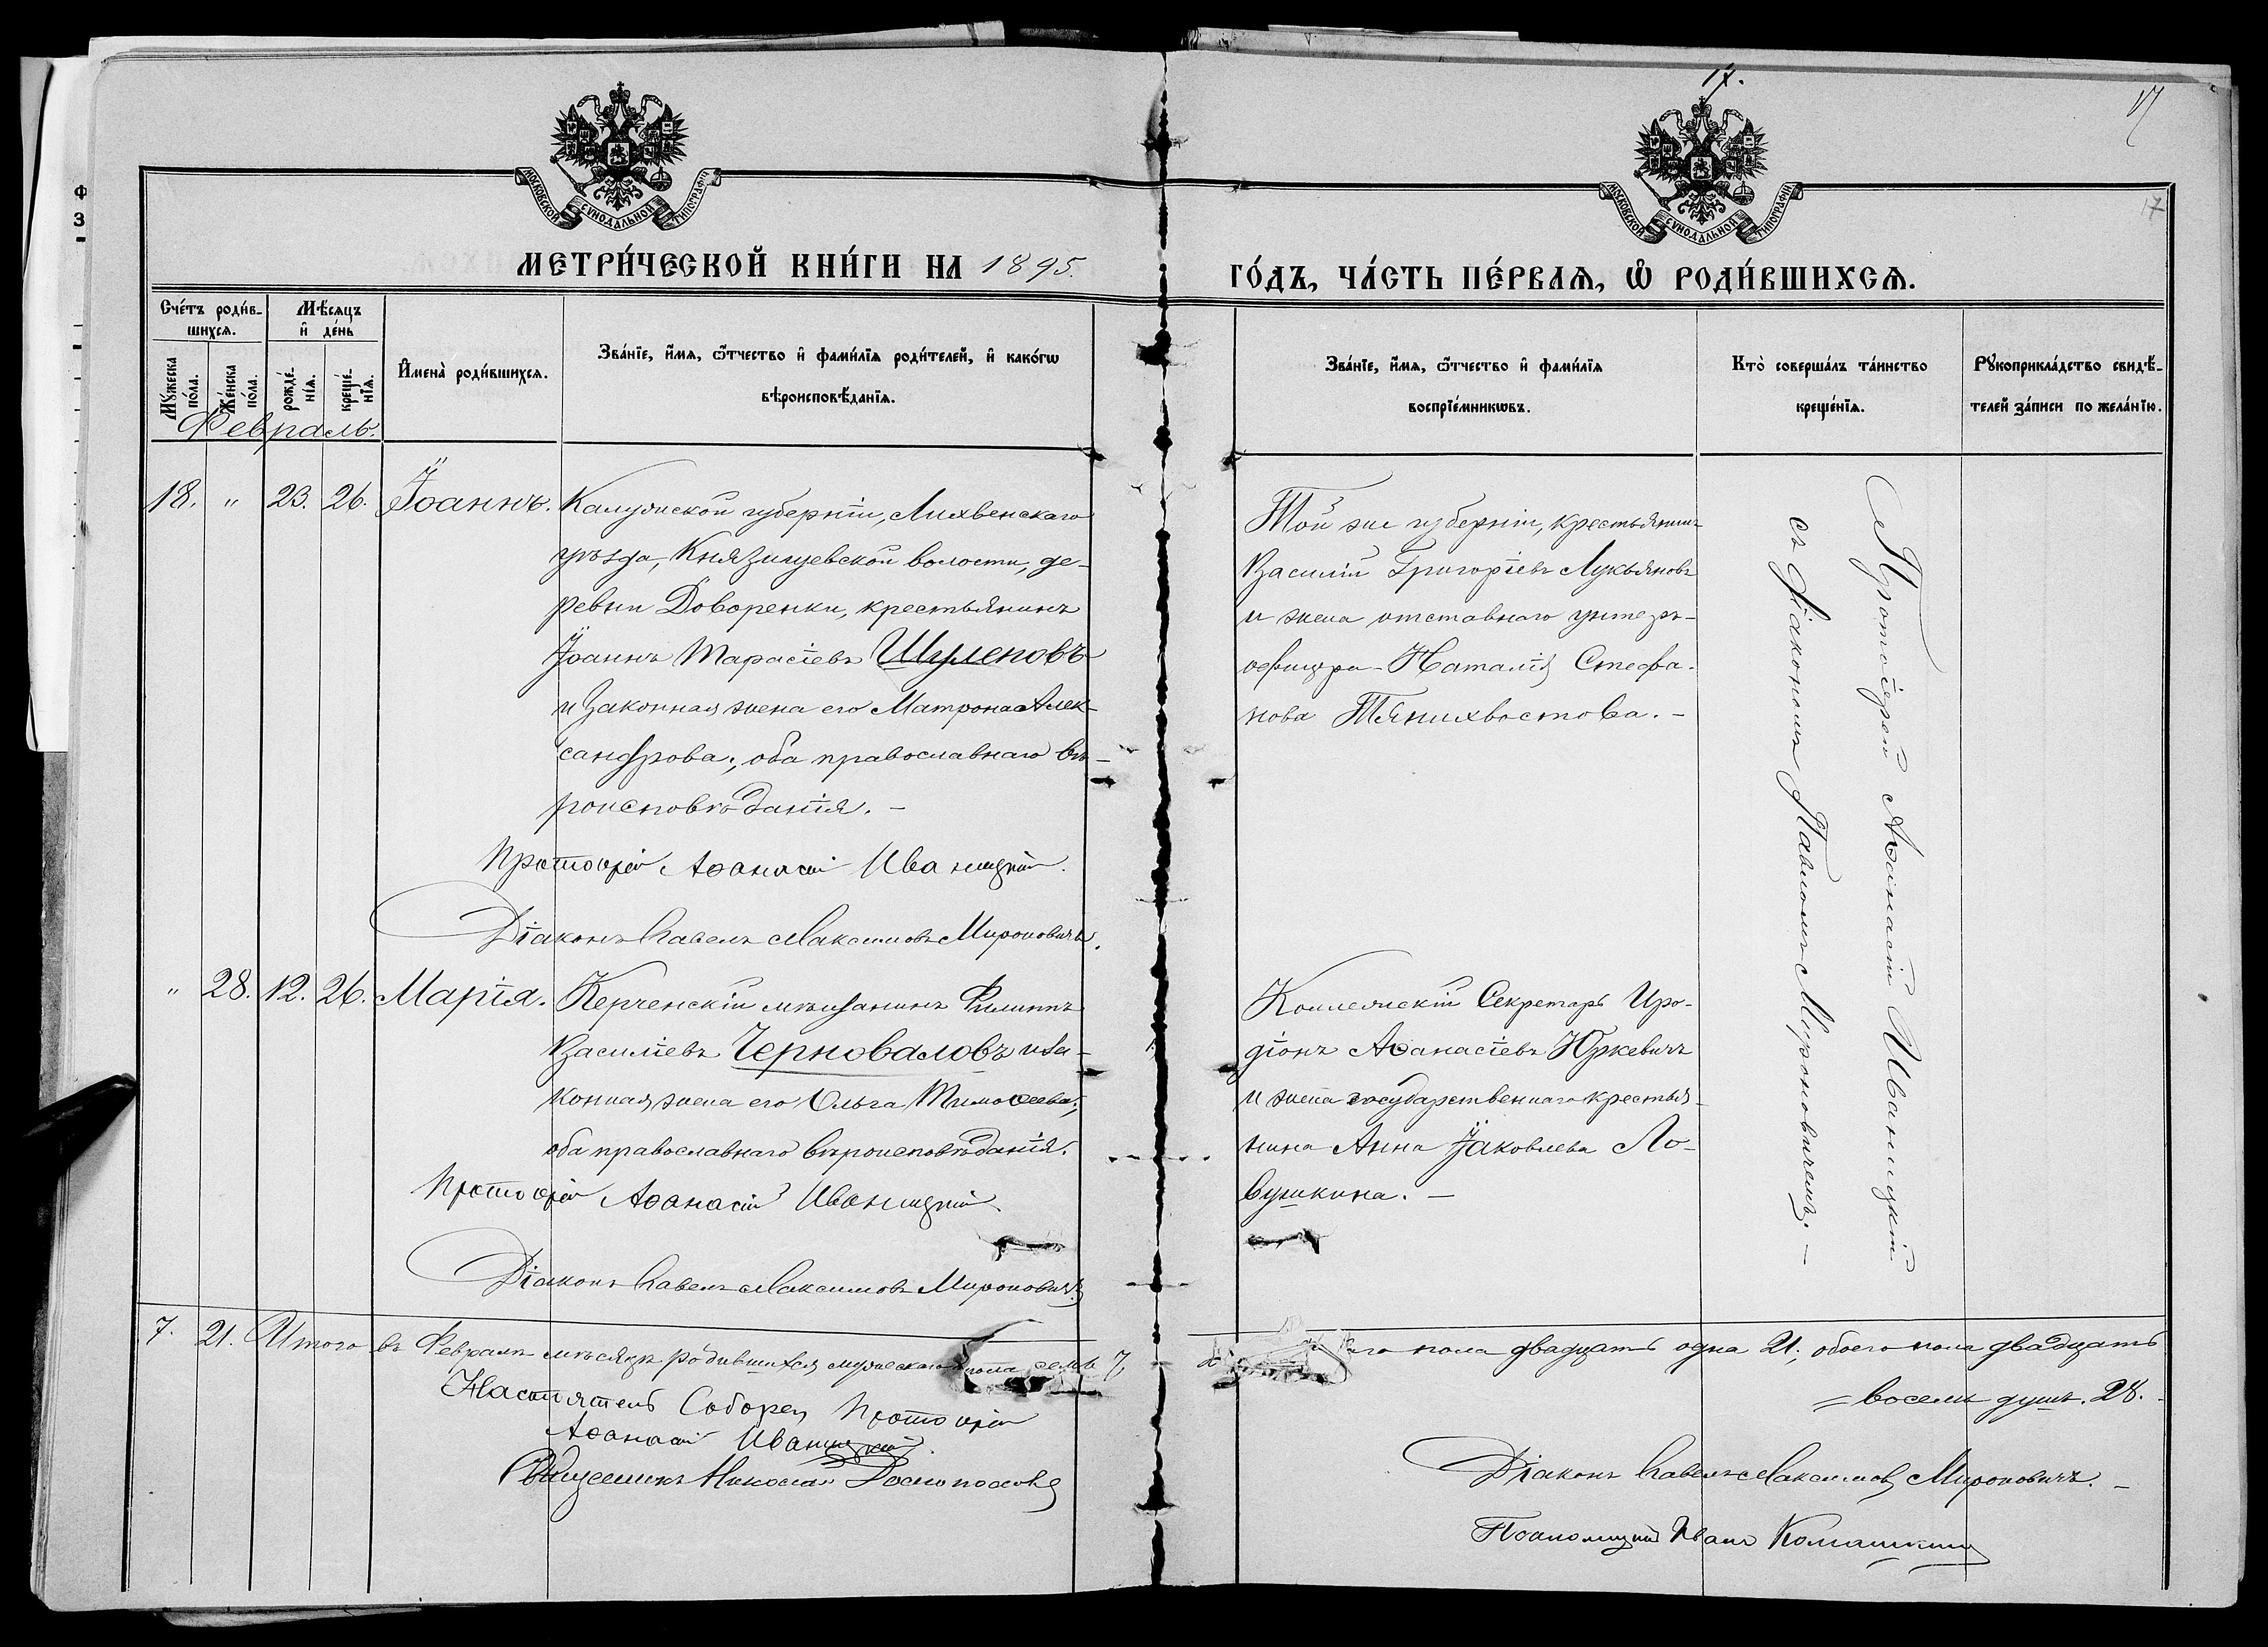 17.
17
17
МОСКОВСКОЙ СУНОДАЛЬНОЙ ТИПОГРАФІИ
МОСКОВСКОЙ СУНОДАЛЬНОЙ ТИПОГРАФІИ
МЕТРИ́ЧЕСКОЙ КНИ́ГИ НА 1895.
ГО́ДЪ, ЧА́СТЬ ПЕ́РВАѦ, Ѡ҆ РОДИ́ВШИХСѦ.
Сче́тъ роди́в-
шихсѧ.
Мѣ́сѧцъ
и҆ де́нь
Мꙋ́жеска по́ла.
Же́нска по́ла.
рожде́-
нїѧ.
креще́-
нїѧ.
И҆мена̀ роди́вшихсѧ.
Зва́нїе, и҆́мѧ, ѻ҆́тчество и҆ фами́лїѧ роди́телей, и҆ како́гѡ
вѣроисповѣ́данїѧ.
Зва́нїе, и҆́мѧ, ѻ҆́тчество и҆ фами́лїѧ
воспрїе́мникѡвъ.
Кто̀ соверша́лъ та́инство
креще́нїѧ.
Рꙋкоприкла́дство свидѣ́-
телей за́писи по жела́нїю.
Февраль.
18. " 23. 26. Іоаннъ.
Калужской губерніи, Лихвенскаго
уѣзда, Князищевской волости, де-
ревни Доворенки, крестьянинъ
Іоаннъ Тарасіевъ Шуленовъ
и законная жена его Матрона Алек-
сандрова; оба православнаго вѣ-
роисповѣданія. –
Протоіерей Аѳанасій Иваницкій.
Діаконъ Павелъ Максимовъ Мироновичъ.
Той же губерніи, крестьянинъ
Василій Григоріевъ Лукьяновъ
и жена отставнаго унтеръ-
офицера Наталія Стефа-
нова Тянихвостова. –
Протоіерей Аѳанасій Иваницкій
съ Діакономъ Павломъ Мироновичемъ. –
" 28. 12. 26. Марія.
Керченскій мѣщанинъ Филиппъ
Василіевъ Черноваловъ и за-
конная жена его Ольга Тимоѳеева;
оба православнаго вѣроисповѣданія.
Протоіерей Аѳанасій Иваницкій.
Діаконъ Павелъ Максимовъ Мироновичъ.
Коллежскій Секретарь Иро-
діонъ Аѳанасіевъ Юркевичъ
и жена государственнаго крестья-
нина Анна Іаковлева Ло-
вушкина. –
7. 21. Итого въ Февралѣ мѣсяцѣ родившихся мужескаго пола семь 7,
го пола двадцать одна 21; обоего пола двадцать
= восемь душъ. 28. –
Настоятель Собора, Протоіерей
Аѳанасій Иваницкій.
Николай
Діаконъ Павелъ Максимовъ Мироновичъ. –
Псаломщикъ Иванъ